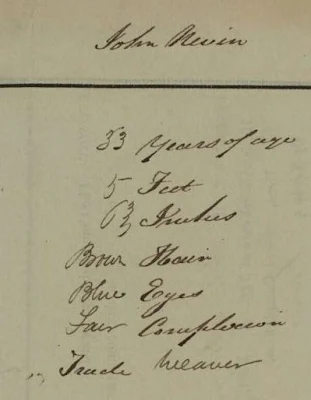 John Nevin
33 Years of age
5 Feet
6½ Inches
Brown Hair
Blue Eyes
Fair Complexion
Trade Weaver